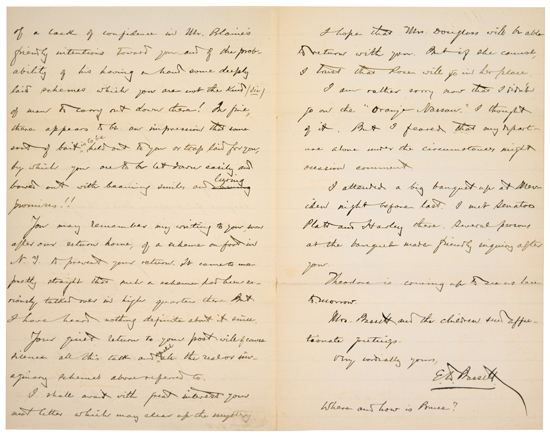 of a lack of confidence in Mr. Blaine's
friendly intentions toward you and of the prob-
ability of his having on hand some deeply
laid schemes which you are not the kind (sic)
of man to carry out down there! In fine,
there appears to be an impression that some
sort of bait is to be held out to you or trap laid for you,
by which you are to be let down easily and
bowed out with beaming smiles and lying
promises!!
You may remember my writing to you soon
after our return home, of a scheme on foot in
N.Y. to prevent your return. It came to me
pretty straight that such a scheme had been se-
riously talked over in high quarters there. But
I have heard nothing definite about it since.
Your quiet return to your post will of course
silence all this talk and the real or im-
aginary schemes above referred to.
I shall await with great interest your
next letter which may clear up the mystery.
I hope that Mrs. Douglass will be able
to return with you. But if she cannot,
I trust that Rosa will go in her place
I am rather sorry now that I didn't
go on the "Oranje Nassau." I thought
of it. But I feared that my depart-
ure alone under the circumstances might
occasion comment.
I attended a big banquet up at Meri-
den night before last. I met Senators
Platt and Hawley there. Several persons
at the banquet made friendly inquiry after
you.
Theodore is coming up to see us here
tomorrow.
Mrs. Bassett and the children send affec-
tionate greetings.
Very cordially yours,
E.D. Bassett
Where and how is